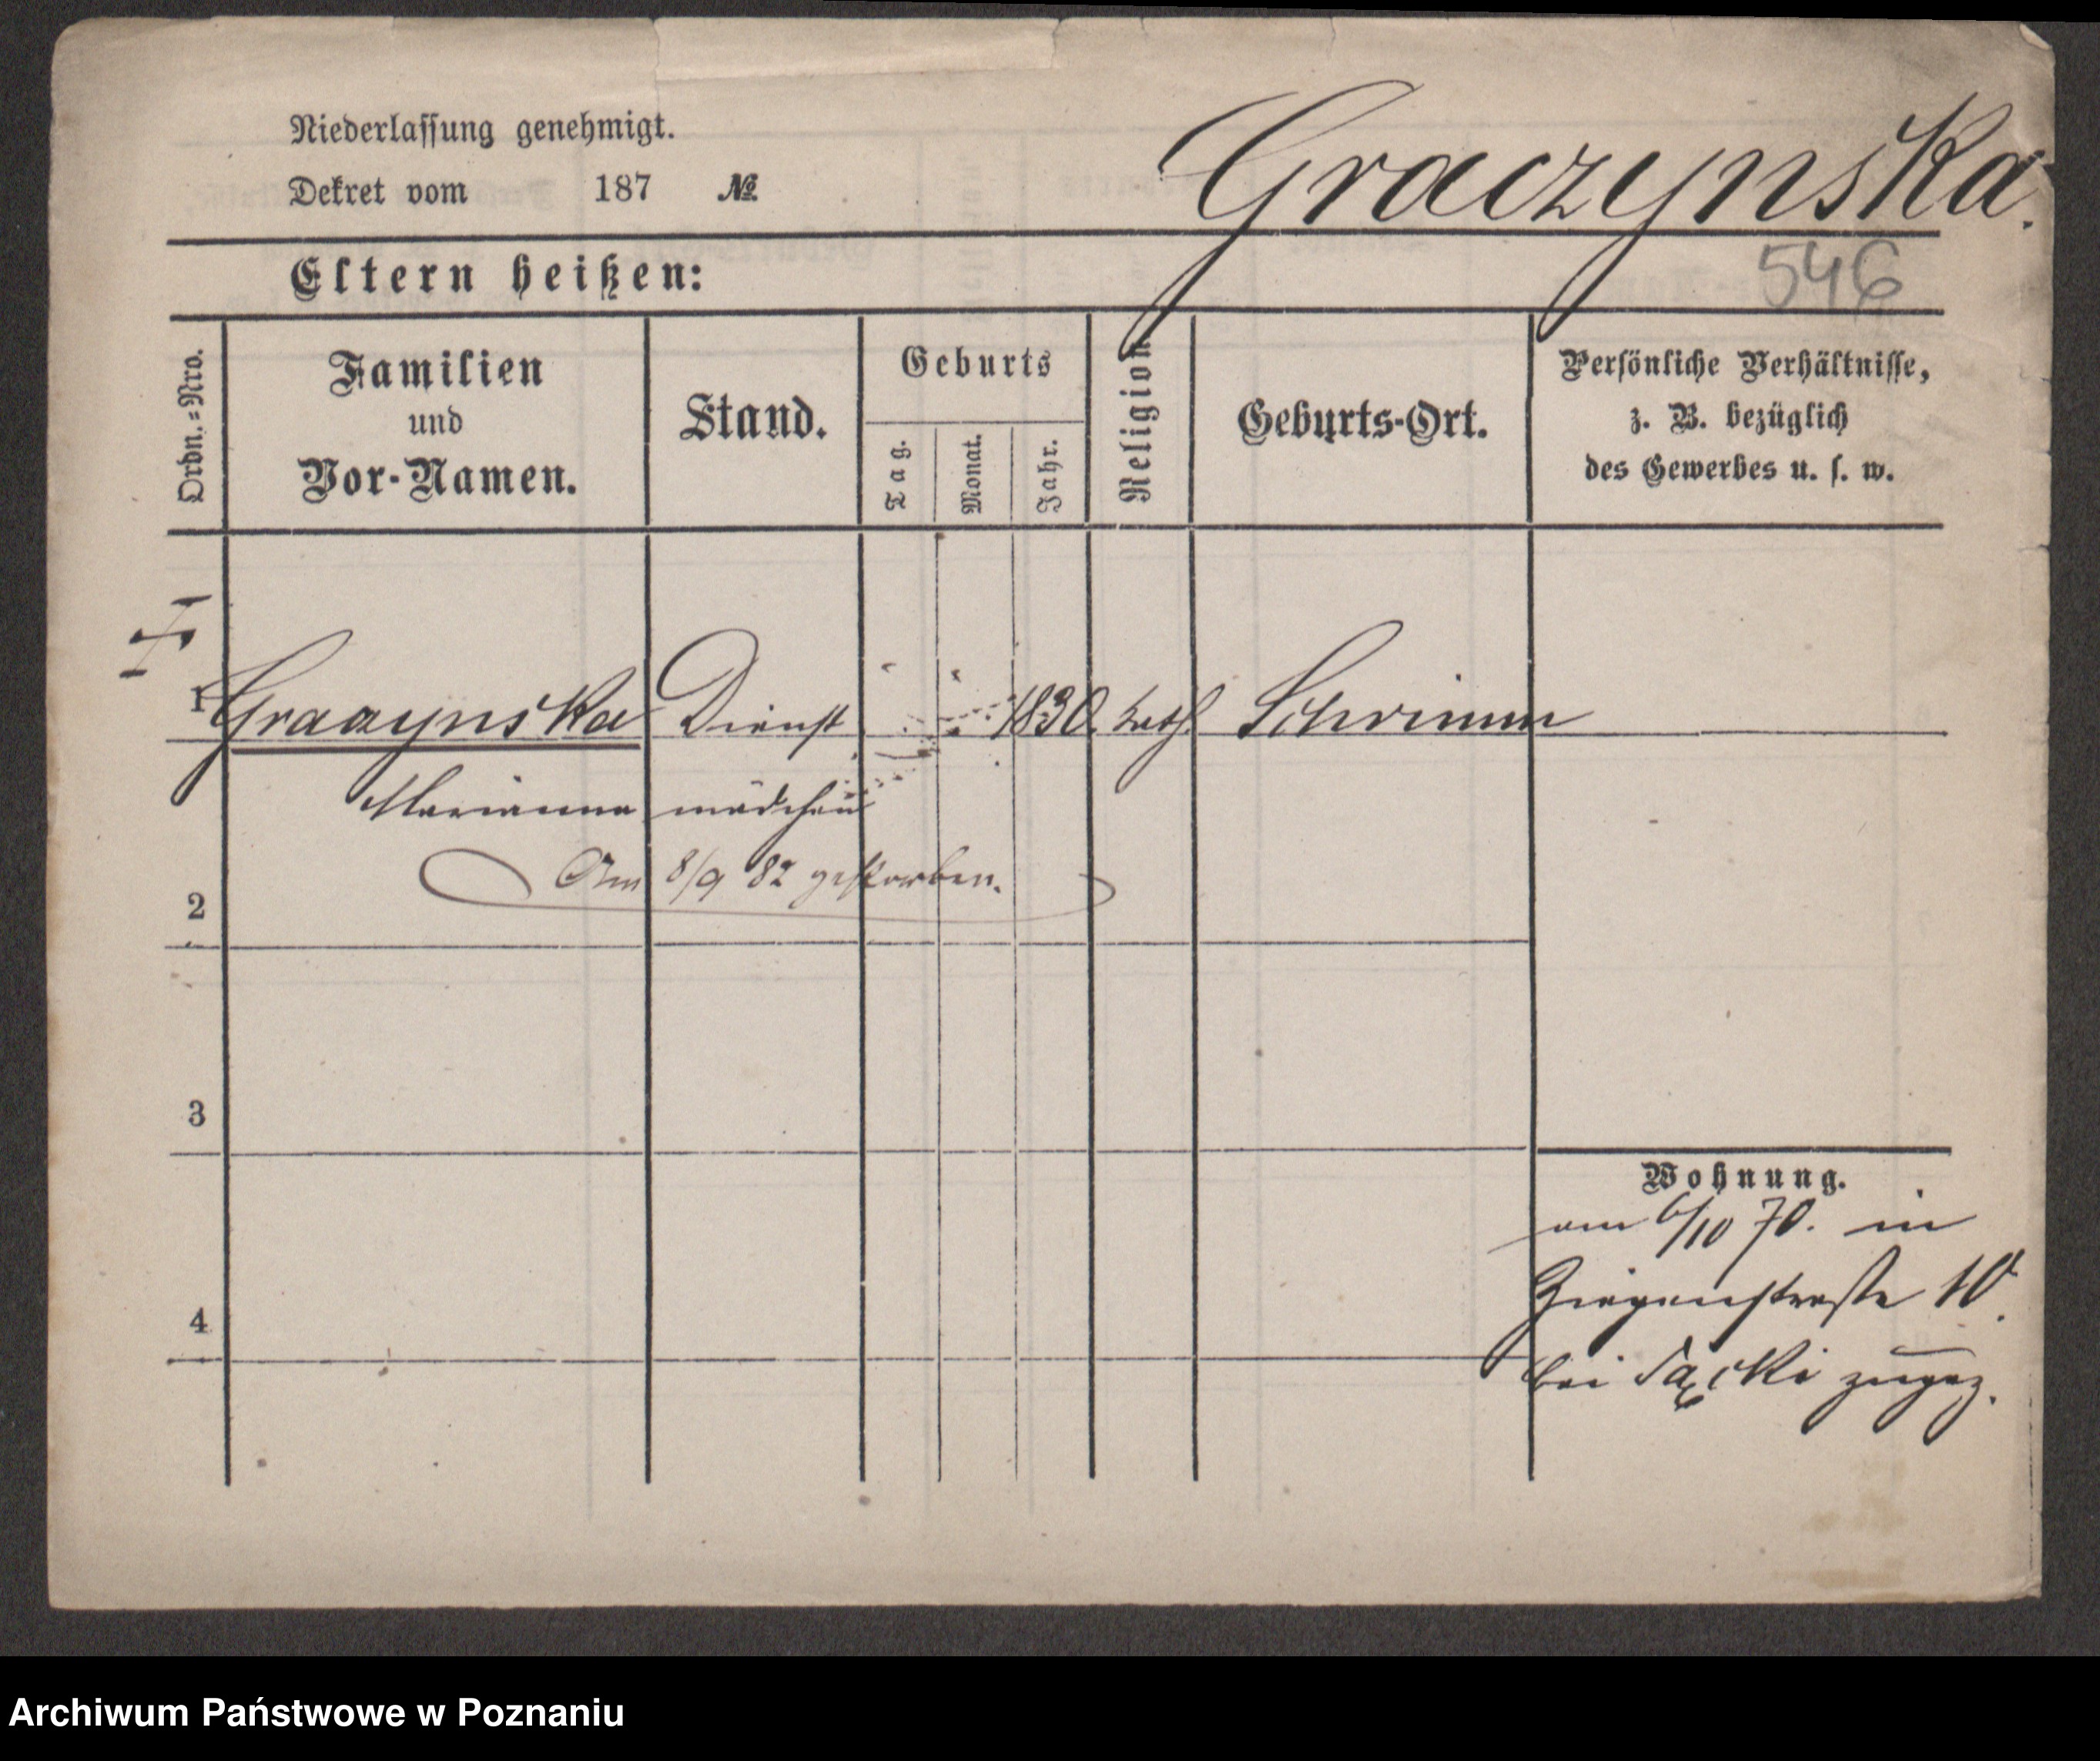 Niederlassung genehmigt.
Dekret vom 187 №
Graczynska.
Eltern heißen:
546
Ordn.=Nro.
Familien
und
Vor-Namen.
Stand.
Geburts
Tag.
Monat.
Jahr.
Religion
Geburts-Ort.
Persönliche Verhältnisse,
z. B. bezüglich
des Gewerbes u. s. w.
1 Graczynska Dienst 1830. kath. Schrimm
Marianna mädchen
Am 8/9 82 gestorben.
2
3
Wohnung.
am 6/10 70. in
Ziegenstraße 10.
4
bei zugez.
Archiwum Państwowe w Poznaniu